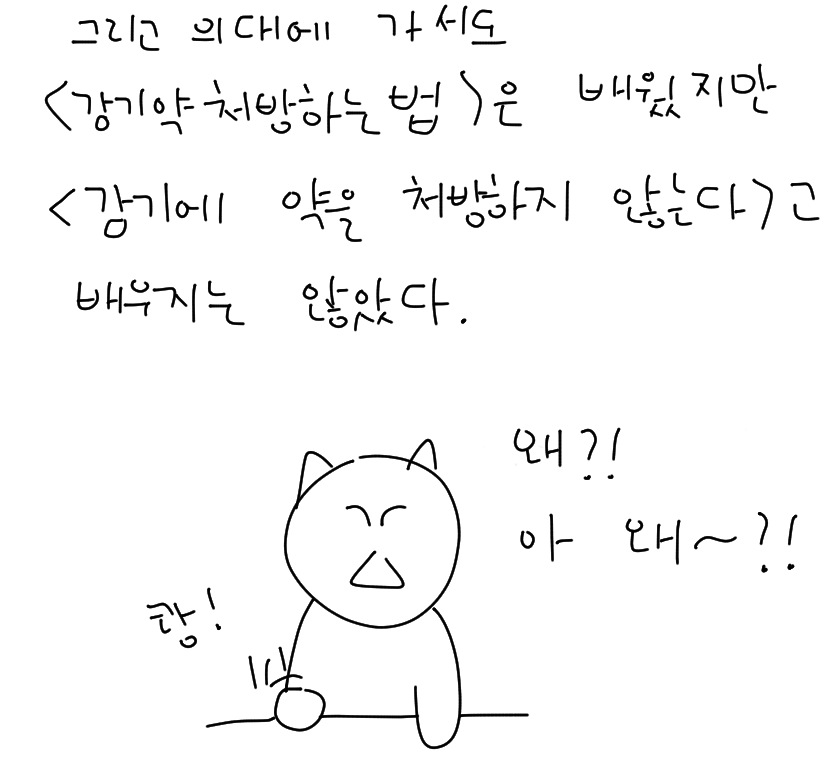 그리고 의대에 가서도
<감기약 처방하는 법>은 배웠지만
<감기에 약을 처방하지 않는다>고
배우지는 않았다.
왜?!
아 왜~?!
쾅!